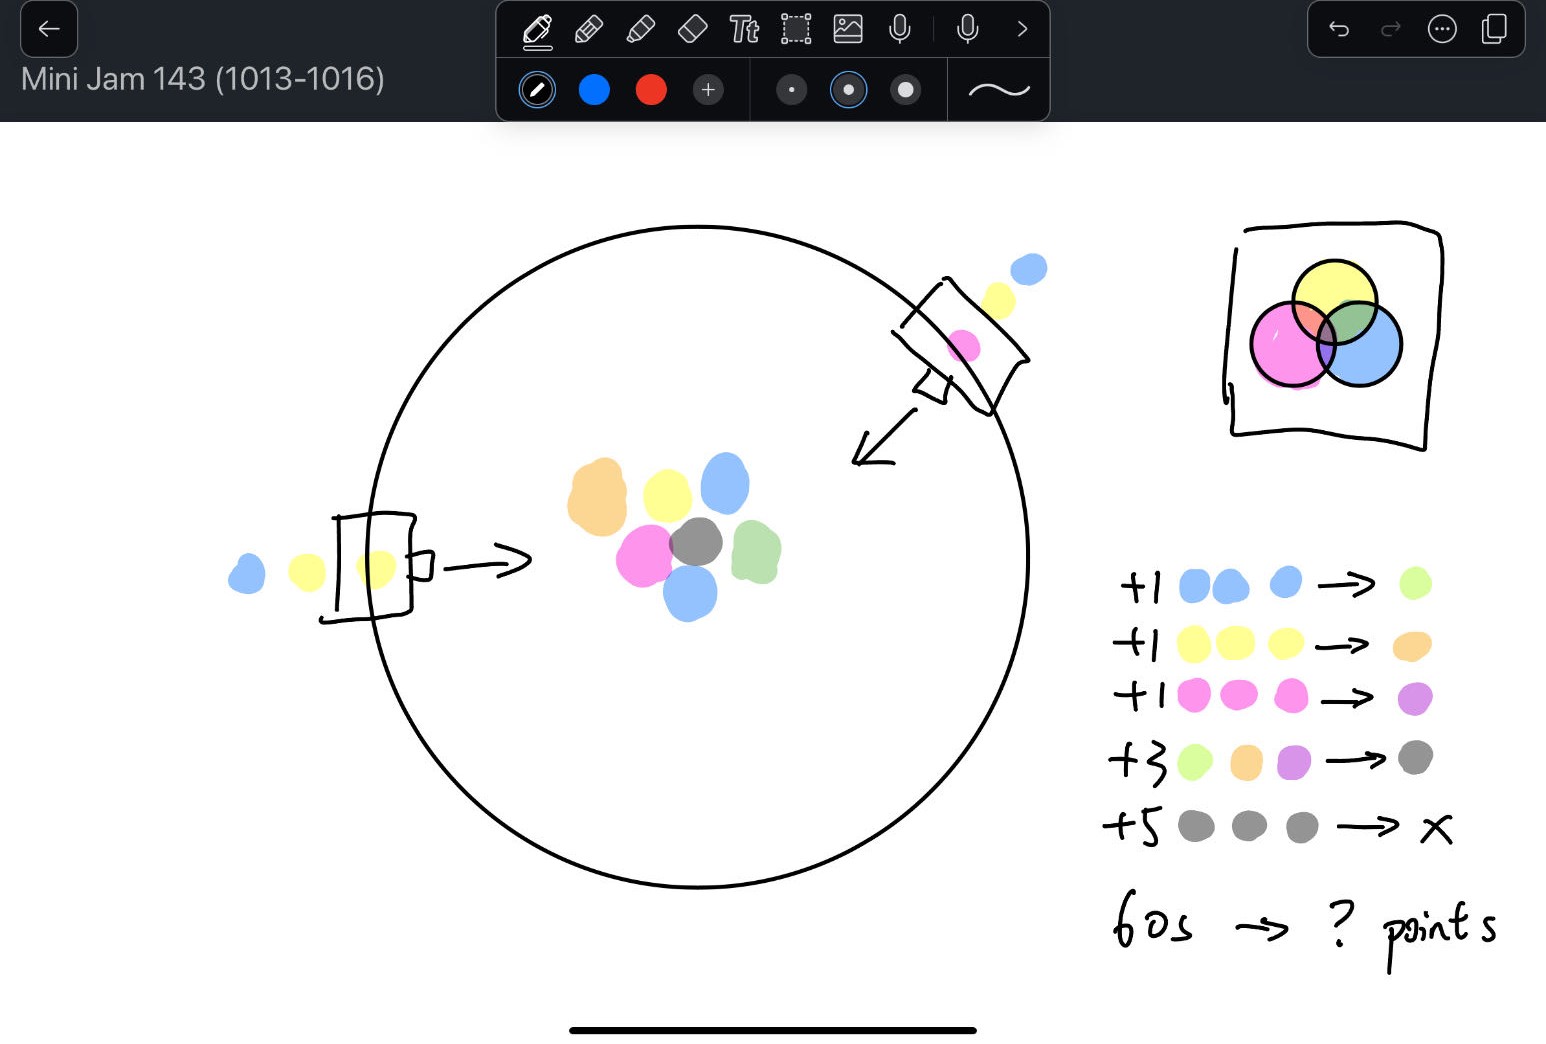 Mini Jam 143 (1013-1016)
Tt
+1
+1
+1
+3
+5 x
60s → ? points